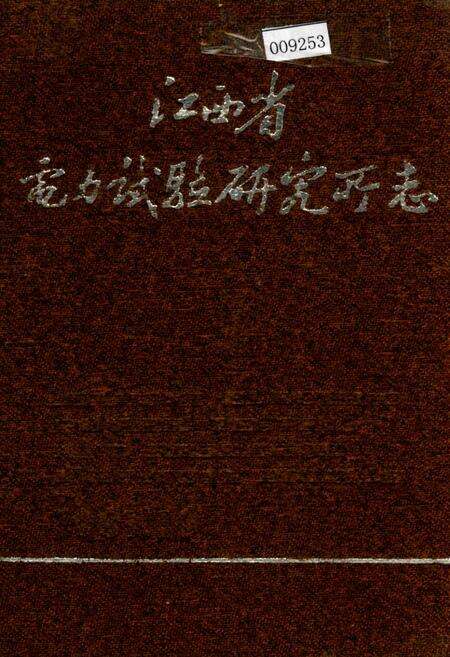 009253
江西省
电力试验研究所志